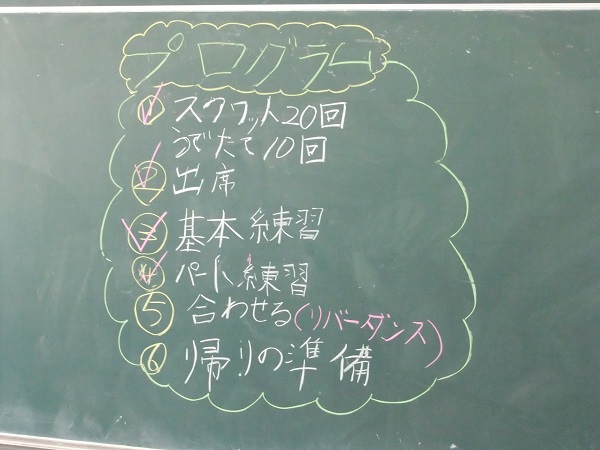 プログラー
① スクワット20回
うでたて10回
② 出席
③ 基本練習
④ パート練習
⑤ 合わせる(リバーダンス)
⑥ 帰りの準備